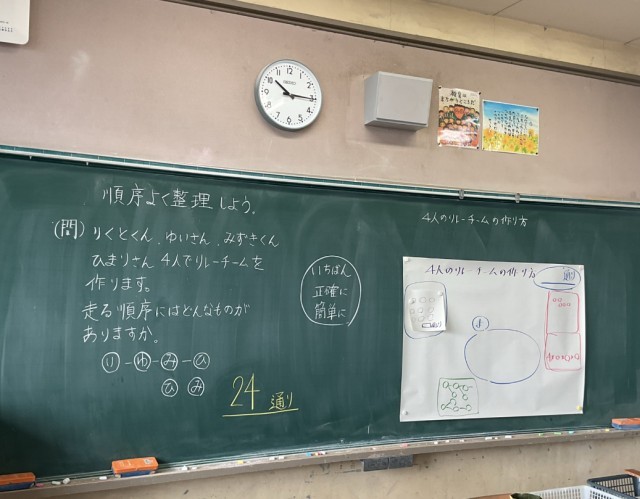 順序よく整理しよう。
(問) りくとくん、ゆいさん、みずきくん
ひまりさん 4人でリレーチームを
作ります。
走る順序にはどんなものが
ありますか。
り-ゆ-み-ひ
ひ み
24 通り
いちばん
正確に
簡単に
4人のリレーチームの作り方
4人のリレーチームの作り方
通り
12
11
10
9
8
7
6
5
4
3
2
1
SEIKO